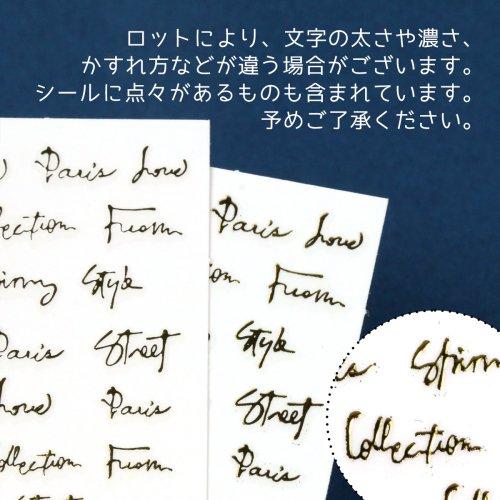 ロットにより、文字の太さや濃さ、
かすれ方などが違う場合がございます。
シールに点々があるものも含まれています。
予めご了承ください。
Paris Love
Collection From
Style
Paris Street
Love Paris
Collection From
Paris Love
From
Style
Street
Paris
Collection